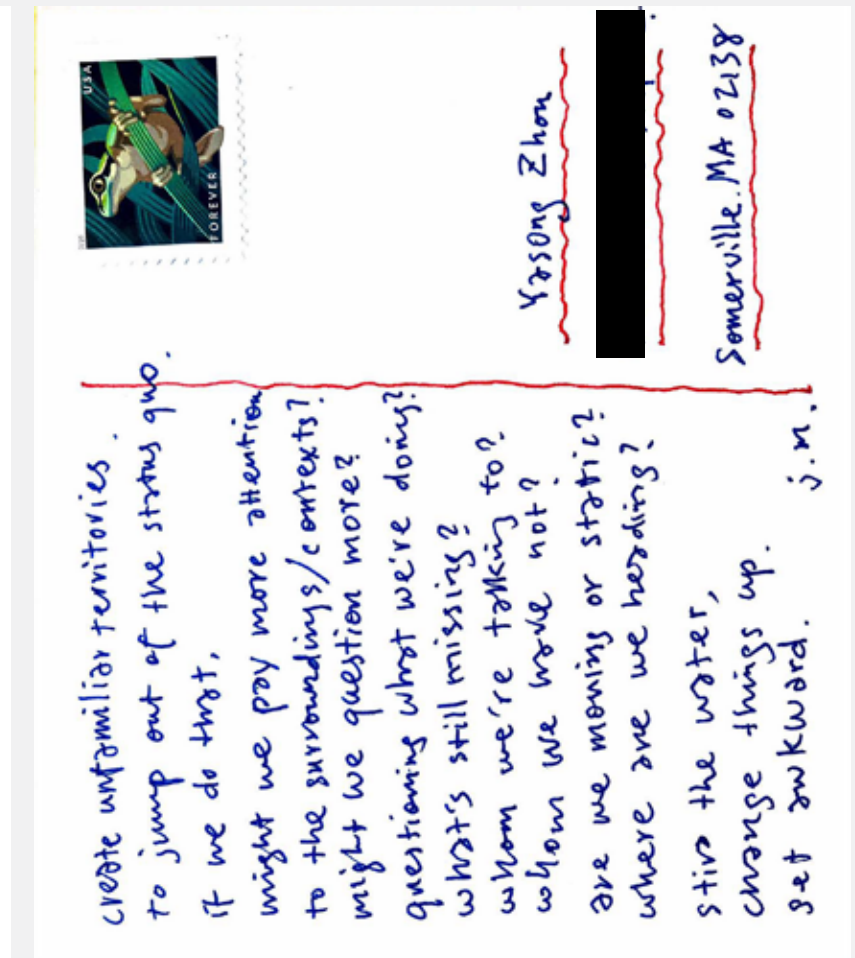 create unfamiliar territories.
to jump out of the status quo.
if we do that,
might we pay more attention
to the surroundings/contexts?
might we question more?
questioning what we're doing?
what's still missing?
whom we're talking to?
whom we have not?
are we moving or static?
where are we heading?
stir the water,
change things up.
get awkward. j.n.
USA
FOREVER
Yasong Zhou
Somerville. MA 02138